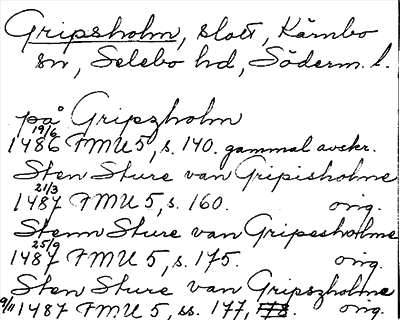 Gripsholm, slott, Kärnbo
sn, Selebo hd, Söderm. l.
på Gripszholm
19/6
1486 FMU 5, s. 140. gammal avskr.
Sten Sture van Gripisholme
21/3
1487 FMU 5, s. 160. orig.
Stenn Sture van Gripesholme
25/9
1487 FMU 5, s. 175. orig.
Sten Sture van Gripszholme
9/11 1487 FMU 5, ss. 177, 178. orig.